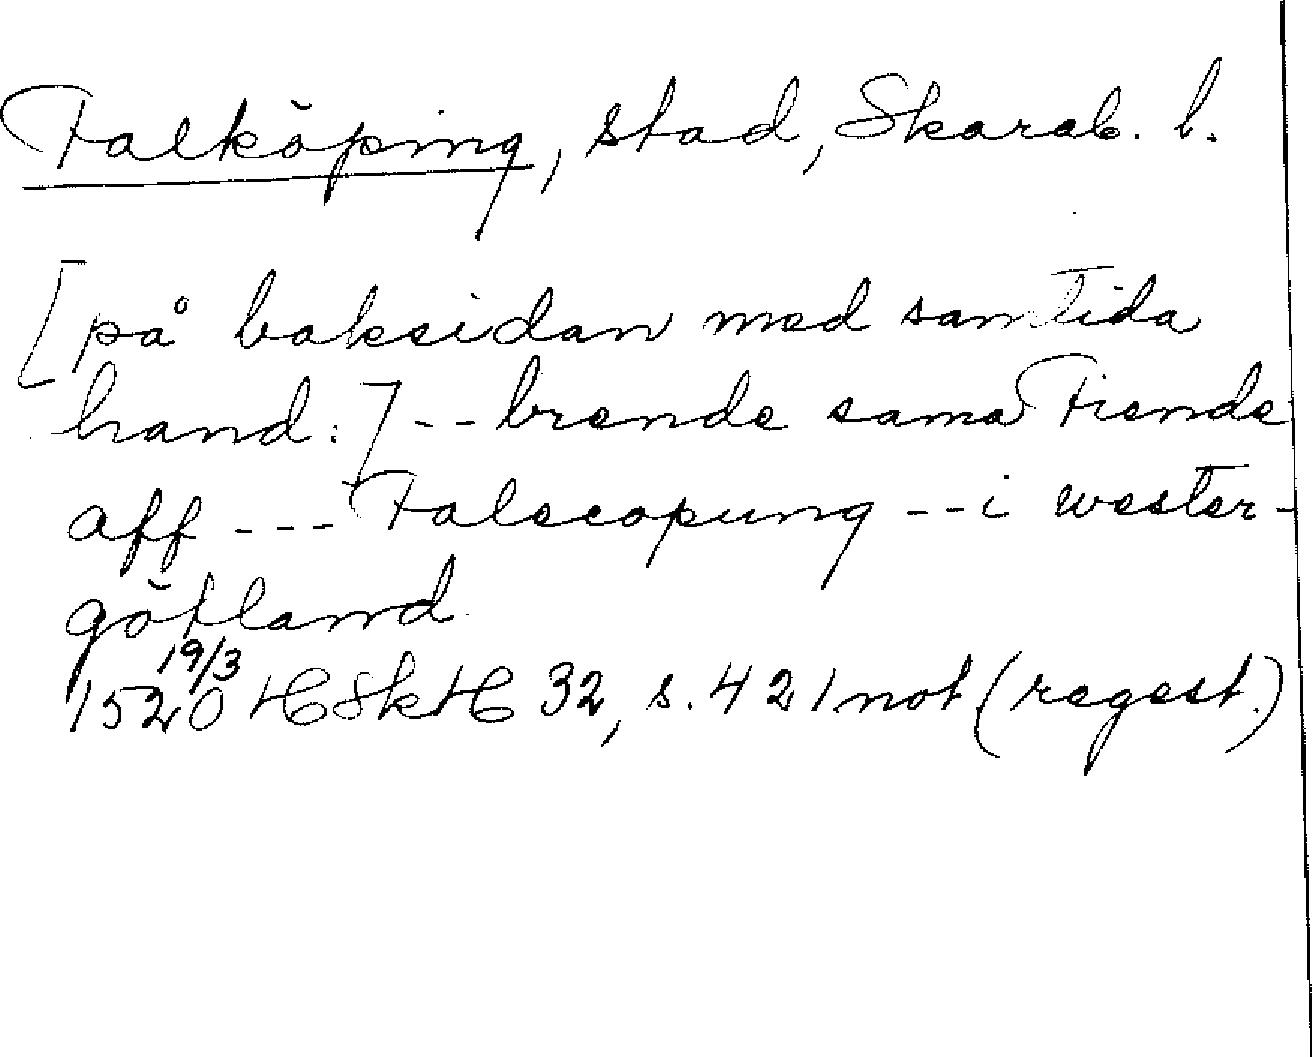 Falköping, stad, Skarab. l.
[på baksidan med samtida
hand:] -- brende sama Fiende
aff --- Falecopung -- i wester-
götland
19/3
1520 HSkH 32, s. 421 not (regest.)